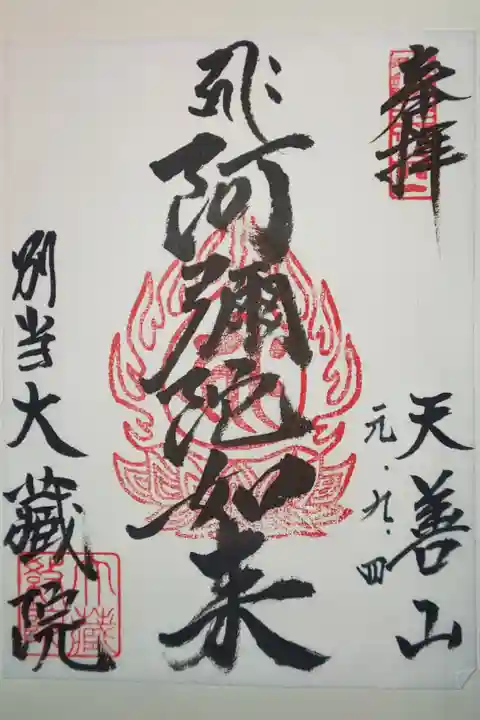 奉拝
天善山
元・九・四
阿彌陀如来
別当大蔵院